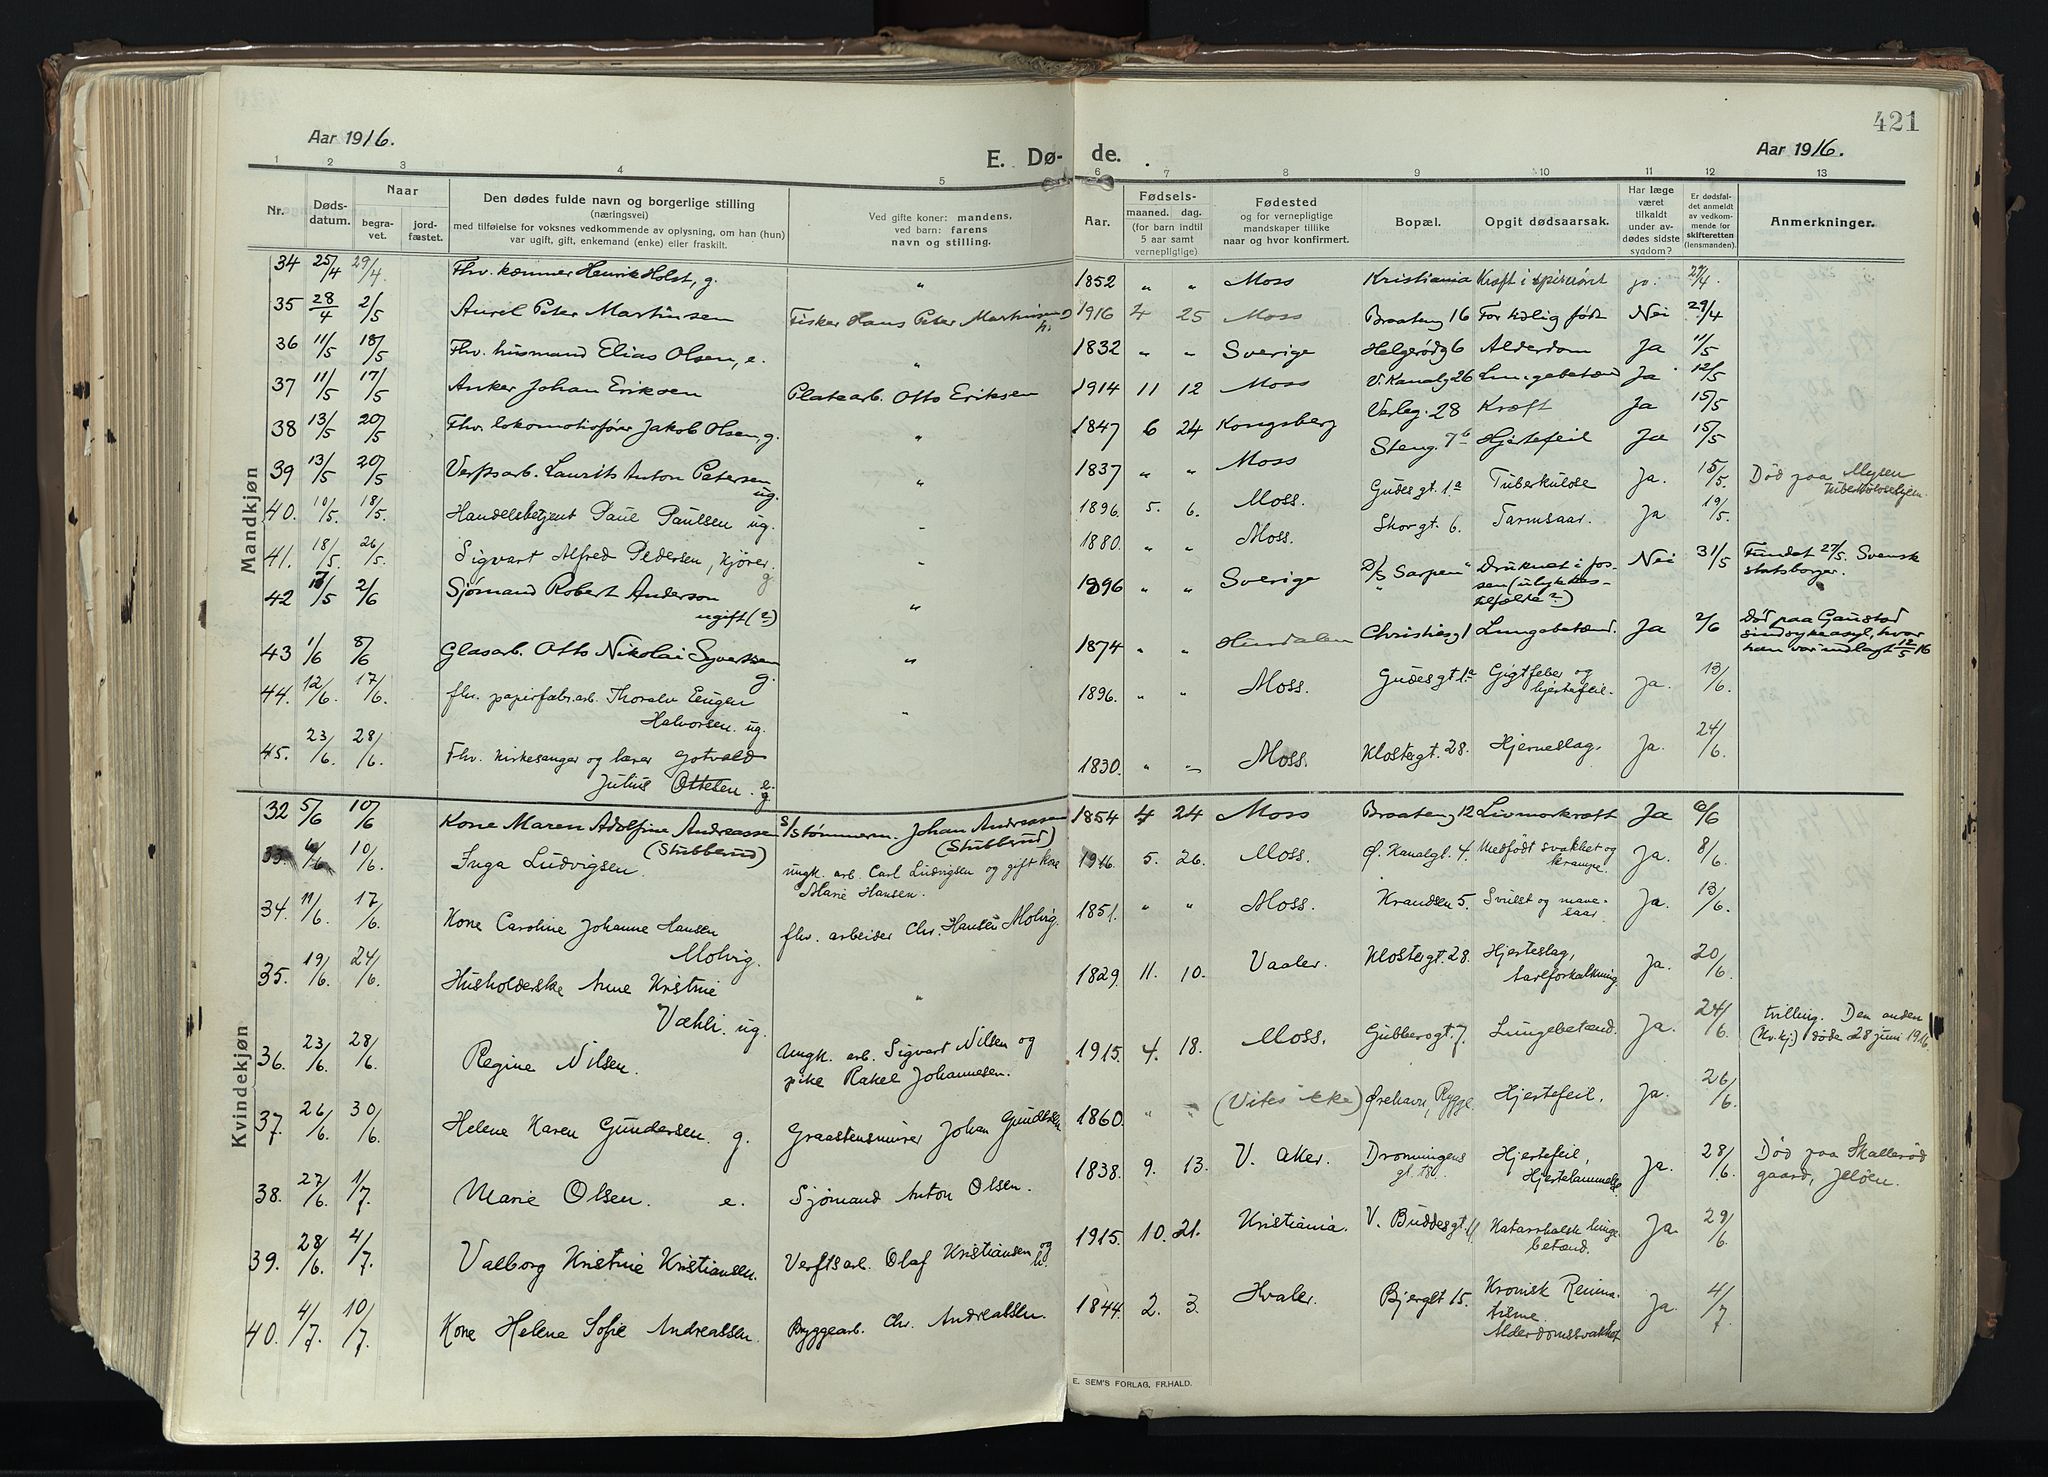 421
Aar 1916.
E. Dø- de.
Aar 1916.
1 2 3 4 5 6 7 8 9 10 11 12 13
Nr. Døds-datum. Naar begra-vet. jord-fæstet. Den dødes fulde navn og borgerlige stilling (næringsvei) med tilføielse for voksnes vedkommende av oplysning, om han (hun) var ugift, gift, enkemand (enke) eller fraskilt. Ved gifte koner: mandens, ved barn: farens navn og stilling. Aar. Fødsels- maaned. dag. (for barn indtil 5 aar samt vernepligtige) Fødested og for vernepligtige mandskaper tillike naar og hvor konfirmert. Bopæl. Opgit dødsaarsak. Har læge været tilkaldt under av-dødes sidste sygdom? Er dødsfal-det anmeldt av vedkom-mende for skifteretten (lensmanden). Anmerkninger.
Mandkjøn
34 25/4 29/4 Fhv. kæmner Henrik Holst, g. " 1852 " " Moss Kristiania Kræft i spiserøret ja. 27/4
35 28/4 2/5 Aurel Peter Martinsen Fisker Hans Peter Martinsen 1916 4 25 Moss Braateng 16 For tidlig født Nei 29/4
36 11/5 18/5 Fhv. husmand Elias Olsen, e. " 1832 " " Sverige Helgerødg 6 Alderdom Ja 11/5
37 11/5 17/5 Anker Johan Eriksen Platearb. Otto Eriksen 1914 11 12 Moss V. Kanalg 26 Lungebetænd Ja 12/5
38 13/5 20/5 Fhv. lokomotivfører Jakob Olsen, g. " 1847 6 24 Kongsberg Varleg. 28 Kræft Ja 15/5
39 13/5 20/5 Verfsarb. Laurits Anton Petersen ug. " 1837 " " Moss Steng. 7b Hjertefeil Ja 15/5
40. 10/5. 18/5. Handelsbetjent Paul Paulsen ug. " 1896 5. 6. Moss. Gudes gt. 1a Tuberkulose Ja. 15/5. Død paa Mysen tuberkulosehjem
41. 18/5. 26/5. Sigvart Alfred Pedersen, Kjører. g " 1880. " " Moss. Skovgt. 6. Tarmsaar. Ja 19/5.
42 17/5 2/6 Sjømand Robert Anderson ugift (?) " 1896 " " Sverige D/S "Sarpen" Druknet i fos-sen (ulykkes-tilfælde?) Nei 31/5 Fundet 27/5. Svensk statsborger.
43 1/6 8/6 Glasarb. Otto Nikolai Syvertsen g. " 1874 " " Hurdalen Christiesg 1 Lungebetænd. Ja 2/6 Død paa Gaustad sindsykeasyl, hvor han var indlagt 12/5 16
44. 12/6. 17/6. fhv. papirfabr.arb. Thoralv Eugen Halvorsen. ug. " 1896. " " Moss. Gudes gt. 1a Gigtfeber og hjertefeil. Ja. 13/6.
45. 23/6. 28/6. Fhv. kirkesanger og lærer Gotvald Julius Ottesen. e. g. 1830. " " Moss. Klostergt. 28. Hjerneslag. Ja. 24/6.
Kvindekjøn
32 5/6 10/6 Kone Maren Adolfine Andreassen (Stubberud) s/ Tømmerm. Johan Andreassen (Stubberud) 1854 4 24 Moss Braateng 12 Livmorkræft Ja 6/6
33. 6/6 10/6 Inga Ludvigsen. ungk. arb. Carl Ludvigsen og gift kone Marie Hansen. 1916. 5. 26. Moss. Ø. Kanalgt. 4. Medfødt svakhet og krampe. Ja. 8/6.
34. 11/6. 17/6. Kone Caroline Johanne Hansen Molvig. fhv. arbeider Chr. Hansen Molvig. 1851. " " Moss. Krandsen 5. Svulst og mave-saar. Ja. 13/6.
35. 19/6. 24/6. Husholderske Anne Kristine Væhli. ug. " 1829. 11. 10. Vaaler. Klostergt. 28. Hjerteslag, Aarforkalkning. Ja. 20/6.
36. 23/6. 28/6. Regine Nilsen. Ungk. arb. Sigvart Nilsen og pike Rakel Johannesen. 1915. 4. 18. Moss. Gubberogt 7. Lungebetænd. Ja. 24/6. tvilling. Den anden (kv.kj.) døde 28 juni 1916.
37. 26/6. 30/6. Helene Karen Gundersen. g. Graastensmurer Johan Gundersen 1860. " " (Vites ikke) Ørehavn, Rygge. Hjertefeil. Ja. 26/6.
38. 27/6. 1/7. Marie Olsen. e. Sjømand Anton Olsen. 1838. 9. 13. V. Aker. Dronningens gt. 18. Hjertefeil, Hjertelammelse Ja. 28/6. Død paa Skallerød gaard, Jeløen.
39. 28/6. 4/7. Valborg Kristine Kristiansen. Verftsarb. Olaf Kristiansen og h. 1915. 10. 21. Kristiania. V. Buddesgt. 11. Katarrhalsk lunge betænd. Ja. 29/6.
40. 4/7. 10/7. Kone Helene Sofie Andreassen. Bryggearb. Chr. Andreassen. 1844. 2. 3. Hvaler. Bjergt 15. Kronisk Reuma-tisme Alderdomssvakhet Ja. 4/7
E. SEM'S FORLAG, FR.HALD.